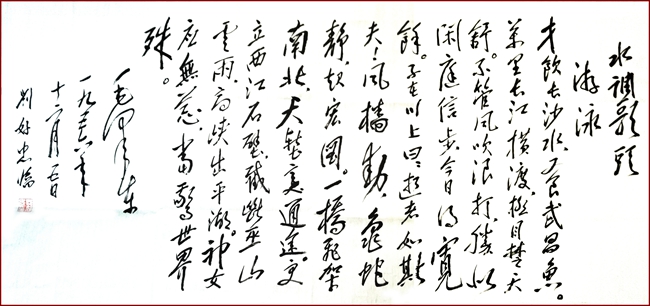 水調歌頭
游泳
才飲長沙水，又食武昌魚。
萬里長江橫渡，極目楚天
舒。不管風吹浪打，勝似
閑庭信步，今日得寬
餘。子在川上曰：逝者如斯
夫！風檣動，龜蛇
靜，起宏圖。一橋飛架
南北，天塹變通途。更
立西江石壁，截斷巫山
雲雨，高峽出平湖。神女
應無恙，當驚世界
殊。
毛澤東
一九五六年
十二月五日
忠臨